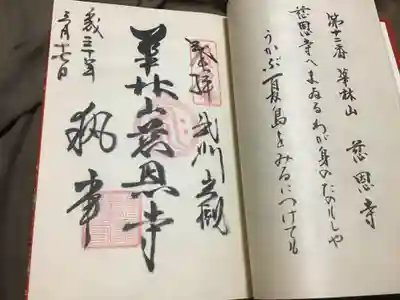 第十二番 華林山 慈恩寺
慈恩寺へまゐるわが身のたのもしや
うかぶ夏島をみるにつけても
奉拝 武州岩槻
華林山慈恩寺
三十年
三月十七日